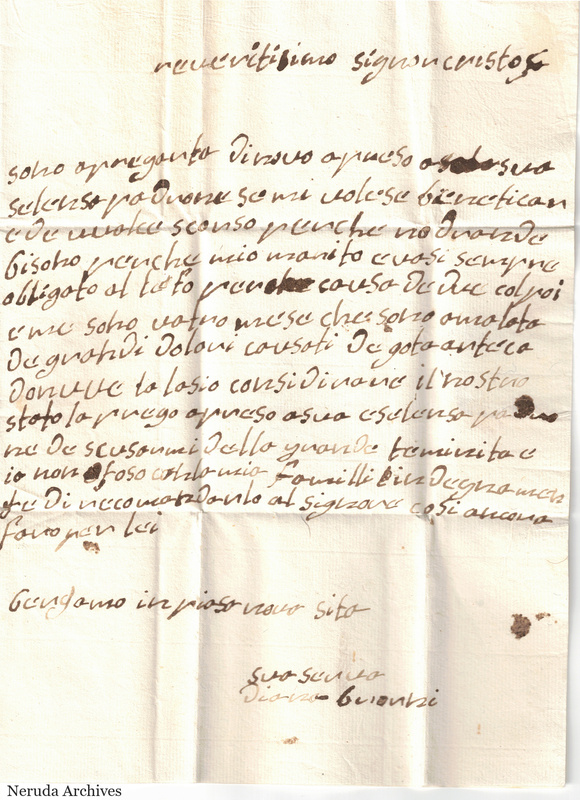 reveritisimo signor cristo
sono apregarla dinovo apreso sua
selensa padrone se mi volese benefican
e de uvolte scorso perche no grande
bisono perche mio marito e vasi sempre
obligato al leto per causa de due colpi
e me sono vatro mese che sono amalata
de grandi dolori causati de gota arteca
donuve la lasio considirare il nostro
stato la prego apreso a sua eselensa pa
ne de scusarmi della grande temirita e
io non foso con la mia familli indegnamen
te di recomandarlo al signore cosi ancora
faro per lei
Bergamo in piosa nova sita
sua serva
Diana Guorizi
Neruda Archives